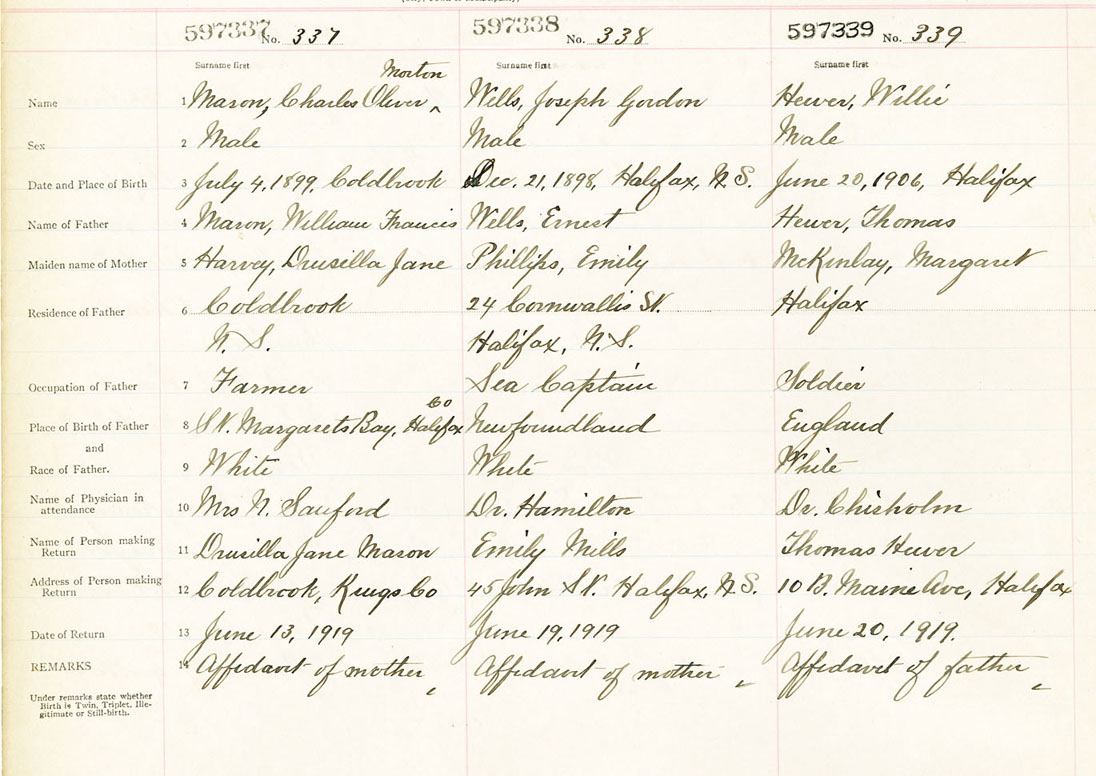 597337 No. 337 597338 No. 338 597339 No. 339
Surname first Surname first Surname first
Morton
Name 1 Mason, Charles Oliver ^ Wells, Joseph Gordon Hewer, Willie
Sex 2 Male Male Male
Date and Place of Birth 3 July 4, 1899, Coldbrook Dec. 21, 1898, Halifax, N.S. June 20, 1906, Halifax
Name of Father 4 Mason, William Francis Wells, Ernest Hewer, Thomas
Maiden name of Mother 5 Harvey, Drusilla Jane Phillips, Emily McKinlay, Margaret
Residence of Father 6 Coldbrook 24 Cornwallis St. Halifax
N. S. Halifax, N.S.
Occupation of Father 7 Farmer Sea Captain Soldier
Co
Place of Birth of Father 8 St. Margarets Bay, Halifax Newfoundland England
and
Race of Father. 9 White White White
Name of Physician in
attendance 10 Mrs N. Sanford Dr. Hamilton Dr. Chisholm
Name of Person making
Return 11 Drusilla Jane Mason Emily Mills Thomas Hewer
Address of Person making
Return 12 Coldbrook, Kings Co 45 John St. Halifax, N.S. 10 B. Maine Ave, Halifax
Date of Return 13 June 13, 1919 June 19, 1919 June 20, 1919.
REMARKS 14 Affidavit of mother Affidavit of mother Affidavit of father
Under remarks state whether
Birth is Twin, Triplet, Ille-
gitimate or Still-birth.